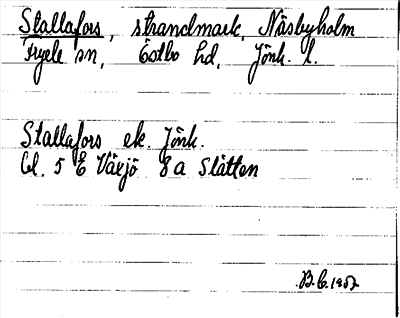 Stallafors, strandmark, Näsbyholm
Fryele sn, Östbo hd, Jönk. l.
Stallafors ek. Jönk.
bl. 5 E Växjö 8a Slätten
B.C. 1952